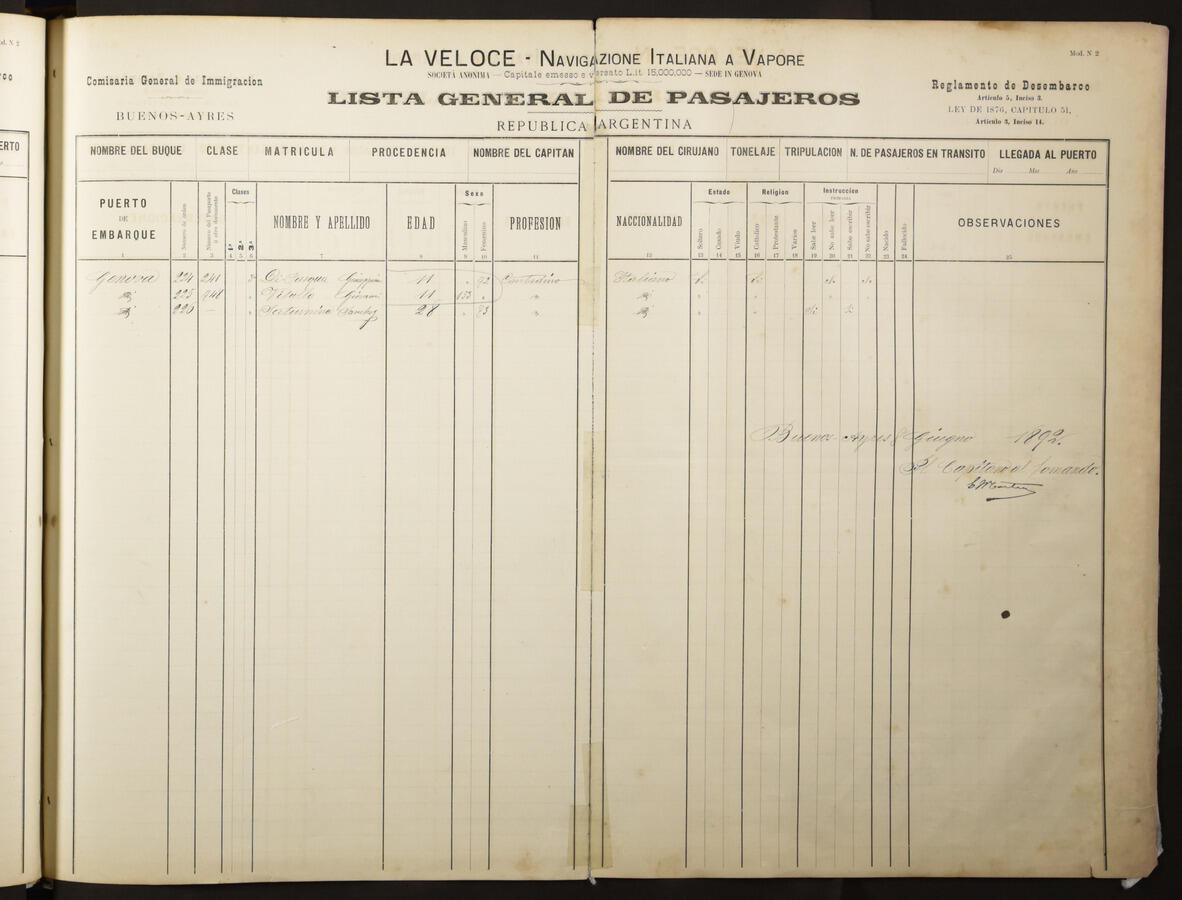 od. N 2
co
ERTO
Mod. N 2
LA VELOCE - NAVIGAZIONE ITALIANA A VAPORE
SOCIETÀ ANONIMA — Capitale emesso e versato L.it. 15,000,000 — SEDE IN GENOVA
Comisaria General de Immigracion
BUENOS-AYRES
LISTA GENERAL DE PASAJEROS
REPUBLICA ARGENTINA
Reglamento de Desembarco
Articulo 5, Inciso 3.
LEY DE 1876, CAPITULO 51,
Articulo 3, Inciso 14.
NOMBRE DEL BUQUE CLASE MATRICULA PROCEDENCIA NOMBRE DEL CAPITAN NOMBRE DEL CIRUJANO TONELAJE TRIPULACION N. DE PASAJEROS EN TRANSITO LLEGADA AL PUERTO
Dia Mes Ano
PUERTO DE EMBARQUE
Número de orden
Número del Pasaporte ú otro documento
Clases
1.ª 2.ª 3.ª
NOMBRE Y APELLIDO
EDAD
Sexo
Masculino Femenino
PROFESION
NACCIONALIDAD
Estado
Soltero Casado Viudo
Religion
Cattolico Protestante Varios
Instruccion
PRIMARIA
Sabe leer No sabe leer Sabe escribir No sabe escribir
Nacido
Fallecido
OBSERVACIONES
1 2 3 4 5 6 7 8 9 10 11 12 13 14 15 16 17 18 19 20 21 22 23 24 25
Genova 224 241 3 Giuseppe 11 " 92 Contadino Italiano
225 948 " Vitullo Giovanni 11 153 " "
226 — " Saturnino Sanchez 28 " 83 "
Buenos Ayres 8 Giugno 1892.
Il Capitano al Comando.